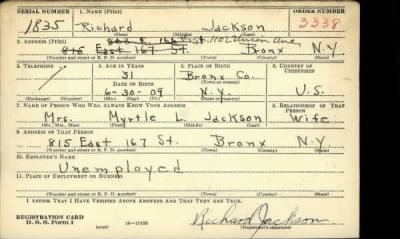 SERIAL NUMBER 1. NAME (Print) ORDER NUMBER
1835 Richard Jackson 3338
(First) (Middle) (Last)
2. ADDRESS (Print) 1102 Union Ave
815 East 167 St. Bronx N.Y.
(Number and street or R. F. D. number) (Town) (County) (State)
3. TELEPHONE 4. AGE IN YEARS 5. PLACE OF BIRTH 6. COUNTRY OF CITIZENSHIP
31 Bronx Co.
DATE OF BIRTH (Town or county)
6-30-09 N.Y. U.S.
(Exchange) (Number) (Mo.) (Day) (Yr.) (State or country)
7. NAME OF PERSON WHO WILL ALWAYS KNOW YOUR ADDRESS 8. RELATIONSHIP OF THAT PERSON
Mrs. Myrtle L. Jackson Wife
(Mr., Mrs., Miss) (First) (Middle) (Last)
9. ADDRESS OF THAT PERSON
815 East 167 St. Bronx N.Y.
(Number and street or R. F. D. number) (Town) (County) (State)
10. EMPLOYER'S NAME
Unemployed
11. PLACE OF EMPLOYMENT OR BUSINESS
(Number and street or R. F. D. number) (Town) (County) (State)
I AFFIRM THAT I HAVE VERIFIED ABOVE ANSWERS AND THAT THEY ARE TRUE.
REGISTRATION CARD
D. S. S. Form 1 (over) 16-17105 Richard Jackson
(Registrant's signature)